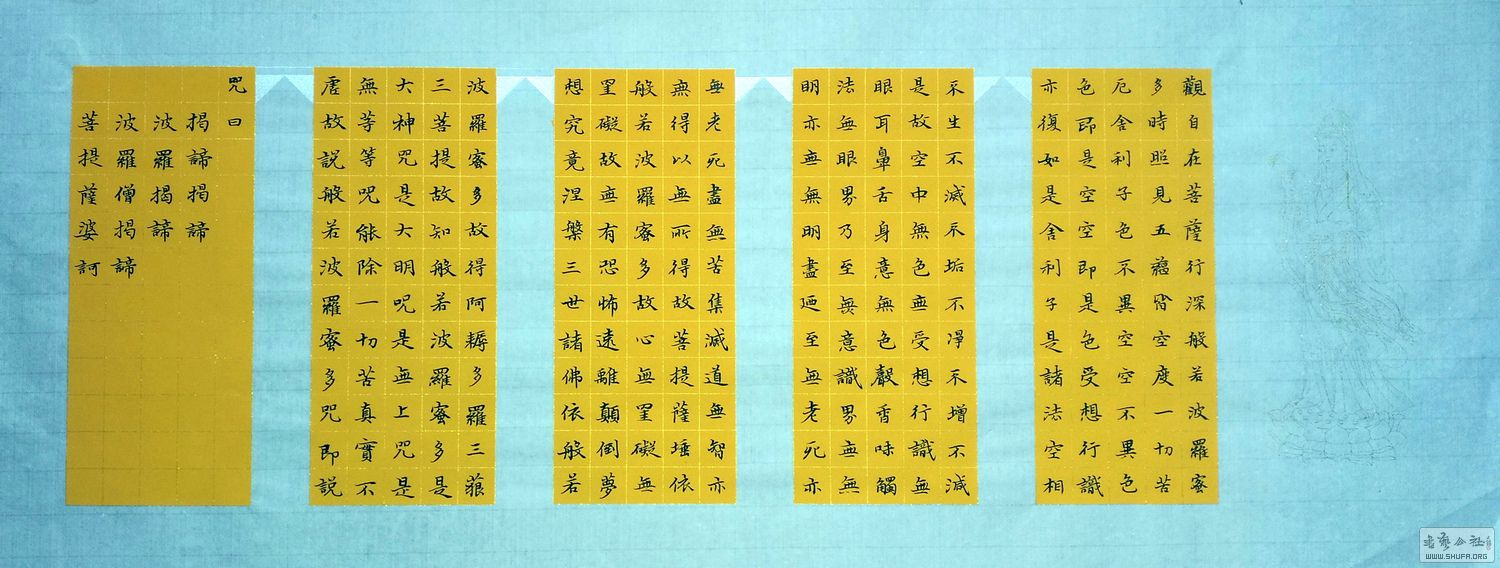 觀自在菩薩行深般若波羅蜜
多時照見五蘊皆空度一切苦
厄舍利子色不異空空不異色
色即是空空即是色受想行識
亦復如是舍利子是諸法空相
不生不滅不垢不淨不增不減
是故空中無色無受想行識無
眼耳鼻舌身意無色聲香味觸
法無眼界乃至無意識界無無
明亦無無明盡迺至無老死亦
無老死盡無苦集滅道無智亦
無得以無所得故菩提薩埵依
般若波羅蜜多故心無罣礙無
罣礙故無有恐怖遠離顛倒夢
想究竟涅槃三世諸佛依般若
波羅蜜多故得阿耨多羅三藐
三菩提故知般若波羅蜜多是
大神咒是大明咒是無上咒是
無等等咒能除一切苦真實不
虛故說般若波羅蜜多咒即說
咒曰
揭諦揭諦
波羅揭諦
波羅僧揭諦
菩提薩婆訶
書藝公社
WWW.SHUFA.ORG